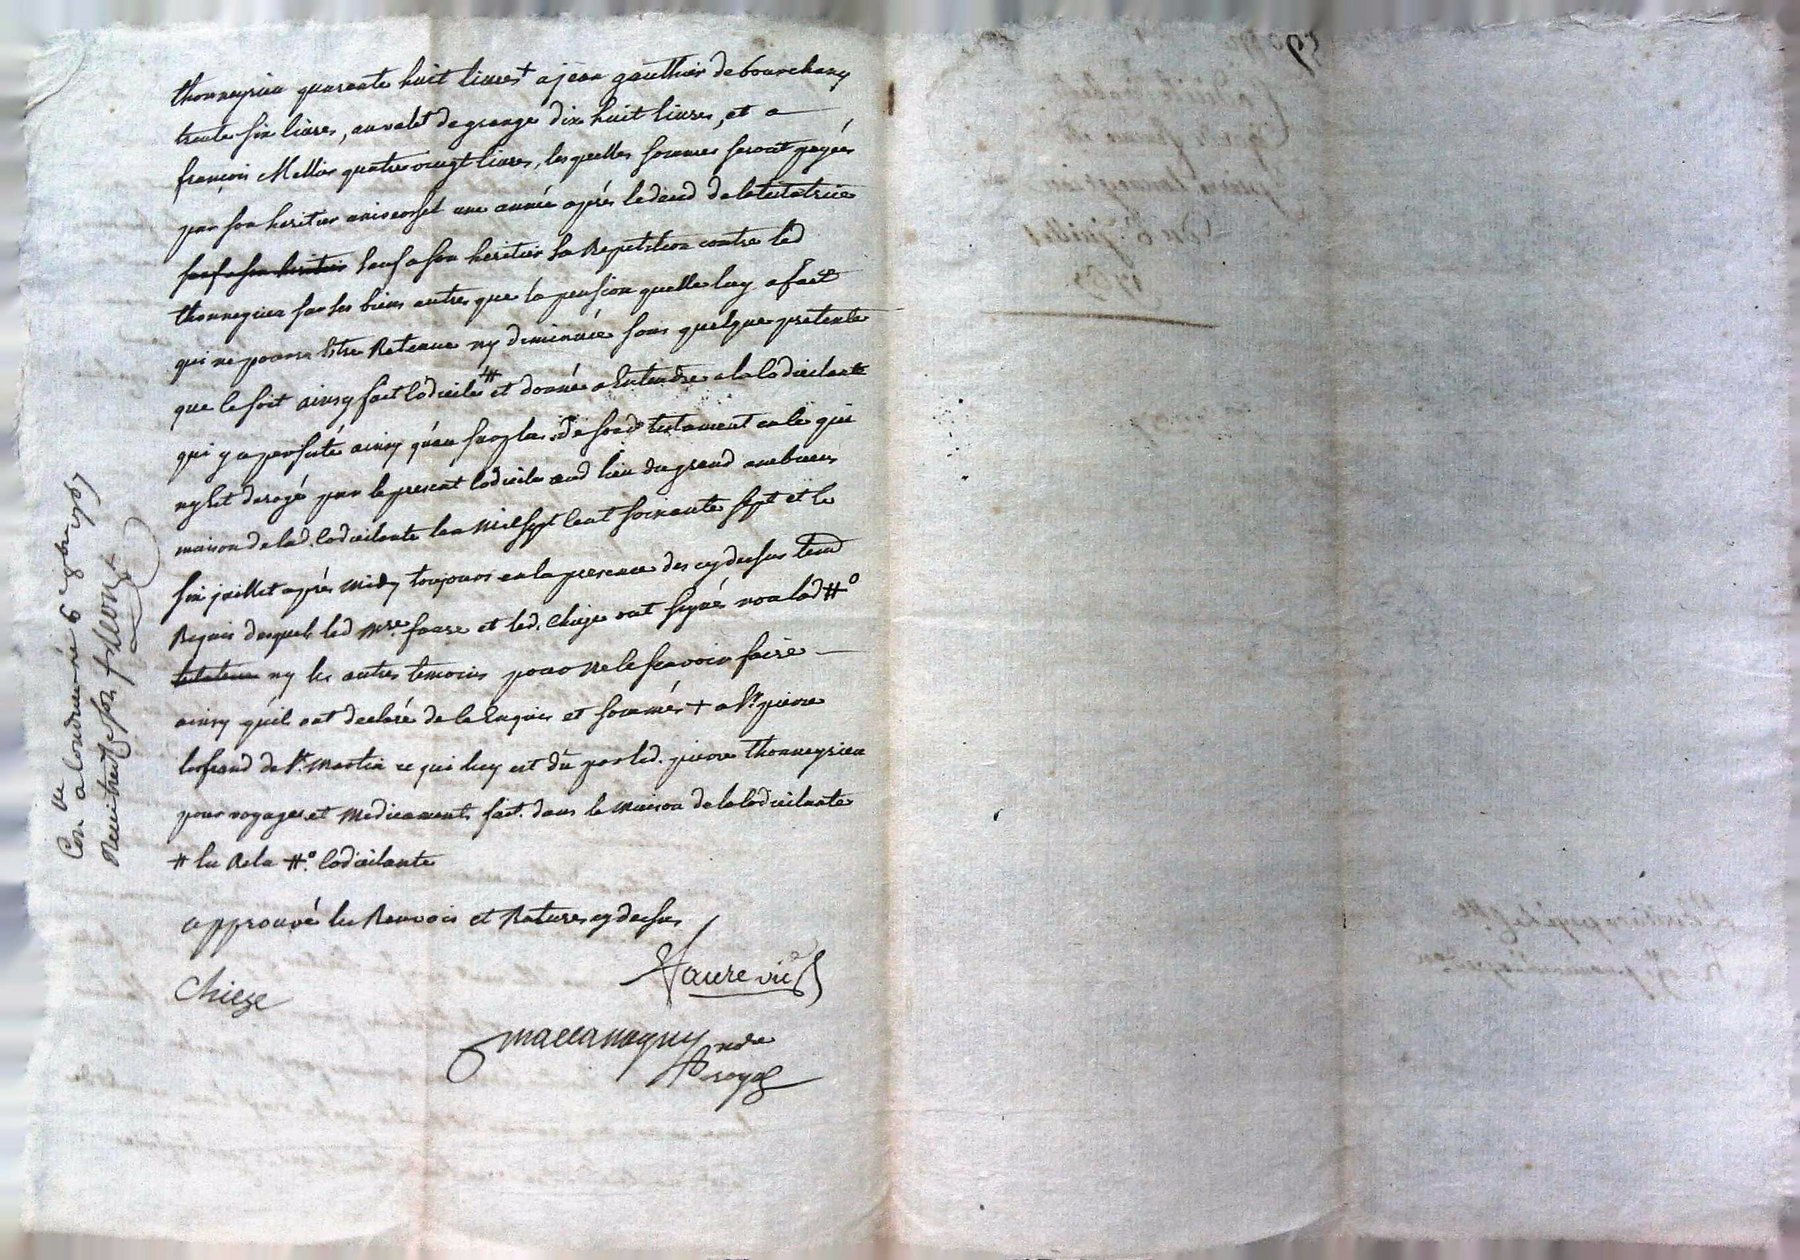 thonneyrieu quarante huit livres + a jean gauthier de bourchany
trente six livres, au valet de grange dix huit livres, et a
françois Mellor quatre vingt livres, lesquelles sommes seront payées
par son heritier universel une année après le deced de la testatrice
sauf a son heritier sauf a son heritier sa Repetition contre led
thonneyrieu sur ses biens autres que la pension quelle luy a fait
qui ne pourra Estre Retenue ny diminuée sous quelque pretexte
que ce soit ainsy fait codicilé # et donné a Entendre a la codicilante
qui y a persisté ainsy qu'au surplus de sond testament en ce qui
n'y Est derogé par le present codicile aud lieu du grand
maison de lad. codicilante l'an mil sept cent soixante sept et le
six juillet après midy toujours en la presence des cy dessus tem
Requis desquels led Mre faure et led. Chieze ont signés non lad #°
testateur ny les autres temoins pour ne le scavoir faire
ainsy quils ont declaré de ce Enquis et sommés + a Sr. pierre
de St. Martin ce qui luy est dû par led. pierre thonneyrieu
pour voyages et medicaments fait dans la maison de la codicilante
# lu Relu #°. codicilante
approuvé les Renvois et Ratures cy dessus
Chieze
faure vic
maccanagny
nore
Royal
Con le a la 6 1767